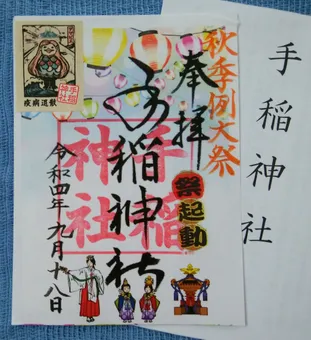 秋季例大祭
奉拝
手稲神社
手稲
神社
祭起動
令和四年九月十八日
疾病退散
手稲神社